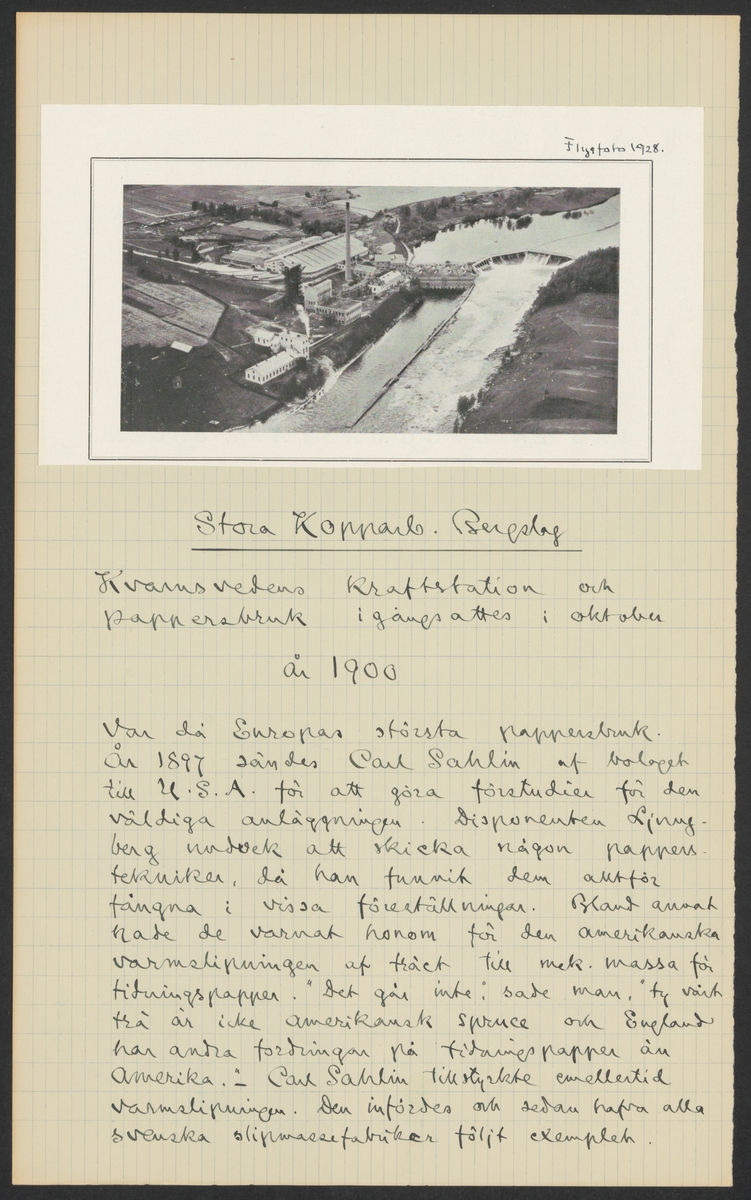 Flygfoto 1928.
Stora Kopparb. Bergslag
Kvarnsvedens kraftstation och
pappersbruk igångsattes i oktober
år 1900
Var då Europas största pappersbruk.
År 1897 sändes Carl Sahlin af bolaget
till U.S.A. för att göra förstudier för den
väldiga anläggningen. Disponenten Ljung-
berg undvek att skicka någon pappers-
tekniker, då han funnit dem alltför
fångna i vissa föreställningar. Bland annat
hade de varnat honom för den amerikanska
varmslipningen af träet till mek. massa för
tidningspapper. "Det går inte", sade man, "ty vårt
trä är icke amerikansk spruce och England
har andra fordringar på tidningspapper än
Amerika." – Carl Sahlin tillstyrkte emellertid
varmslipningen. Den infördes och sedan hafva alla
svenska slipmassefabriker följt exemplet.